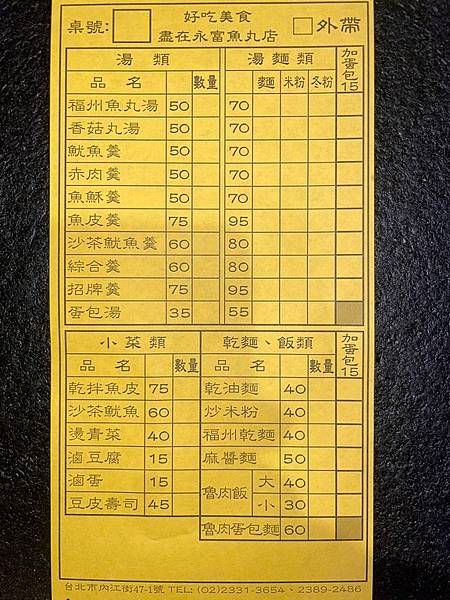 桌號: 好吃美食 外帶
盡在永富魚丸店
湯類 湯麵類 加蛋包15
品名 數量 麵 米粉 冬粉
福州魚丸湯 50 70
香菇丸湯 50 70
魷魚羹 50 70
赤肉羹 50 70
魚酥羹 50 70
魚皮羹 75 95
沙茶魷魚羹 60 80
綜合羹 60 80
招牌羹 75 95
蛋包湯 35 55
小菜類 乾麵、飯類 加蛋包15
品名 數量 品名 數量
乾拌魚皮 75 乾油麵 40
沙茶魷魚 60 炒米粉 40
燙青菜 40 福州乾麵 40
滷豆腐 15 麻醬麵 50
滷蛋 15 魯肉飯 大 40
豆皮壽司 45 小 30
魯肉蛋包麵 60
台北市內江街47-1號 TEL: (02)2331-3654、2389-2486